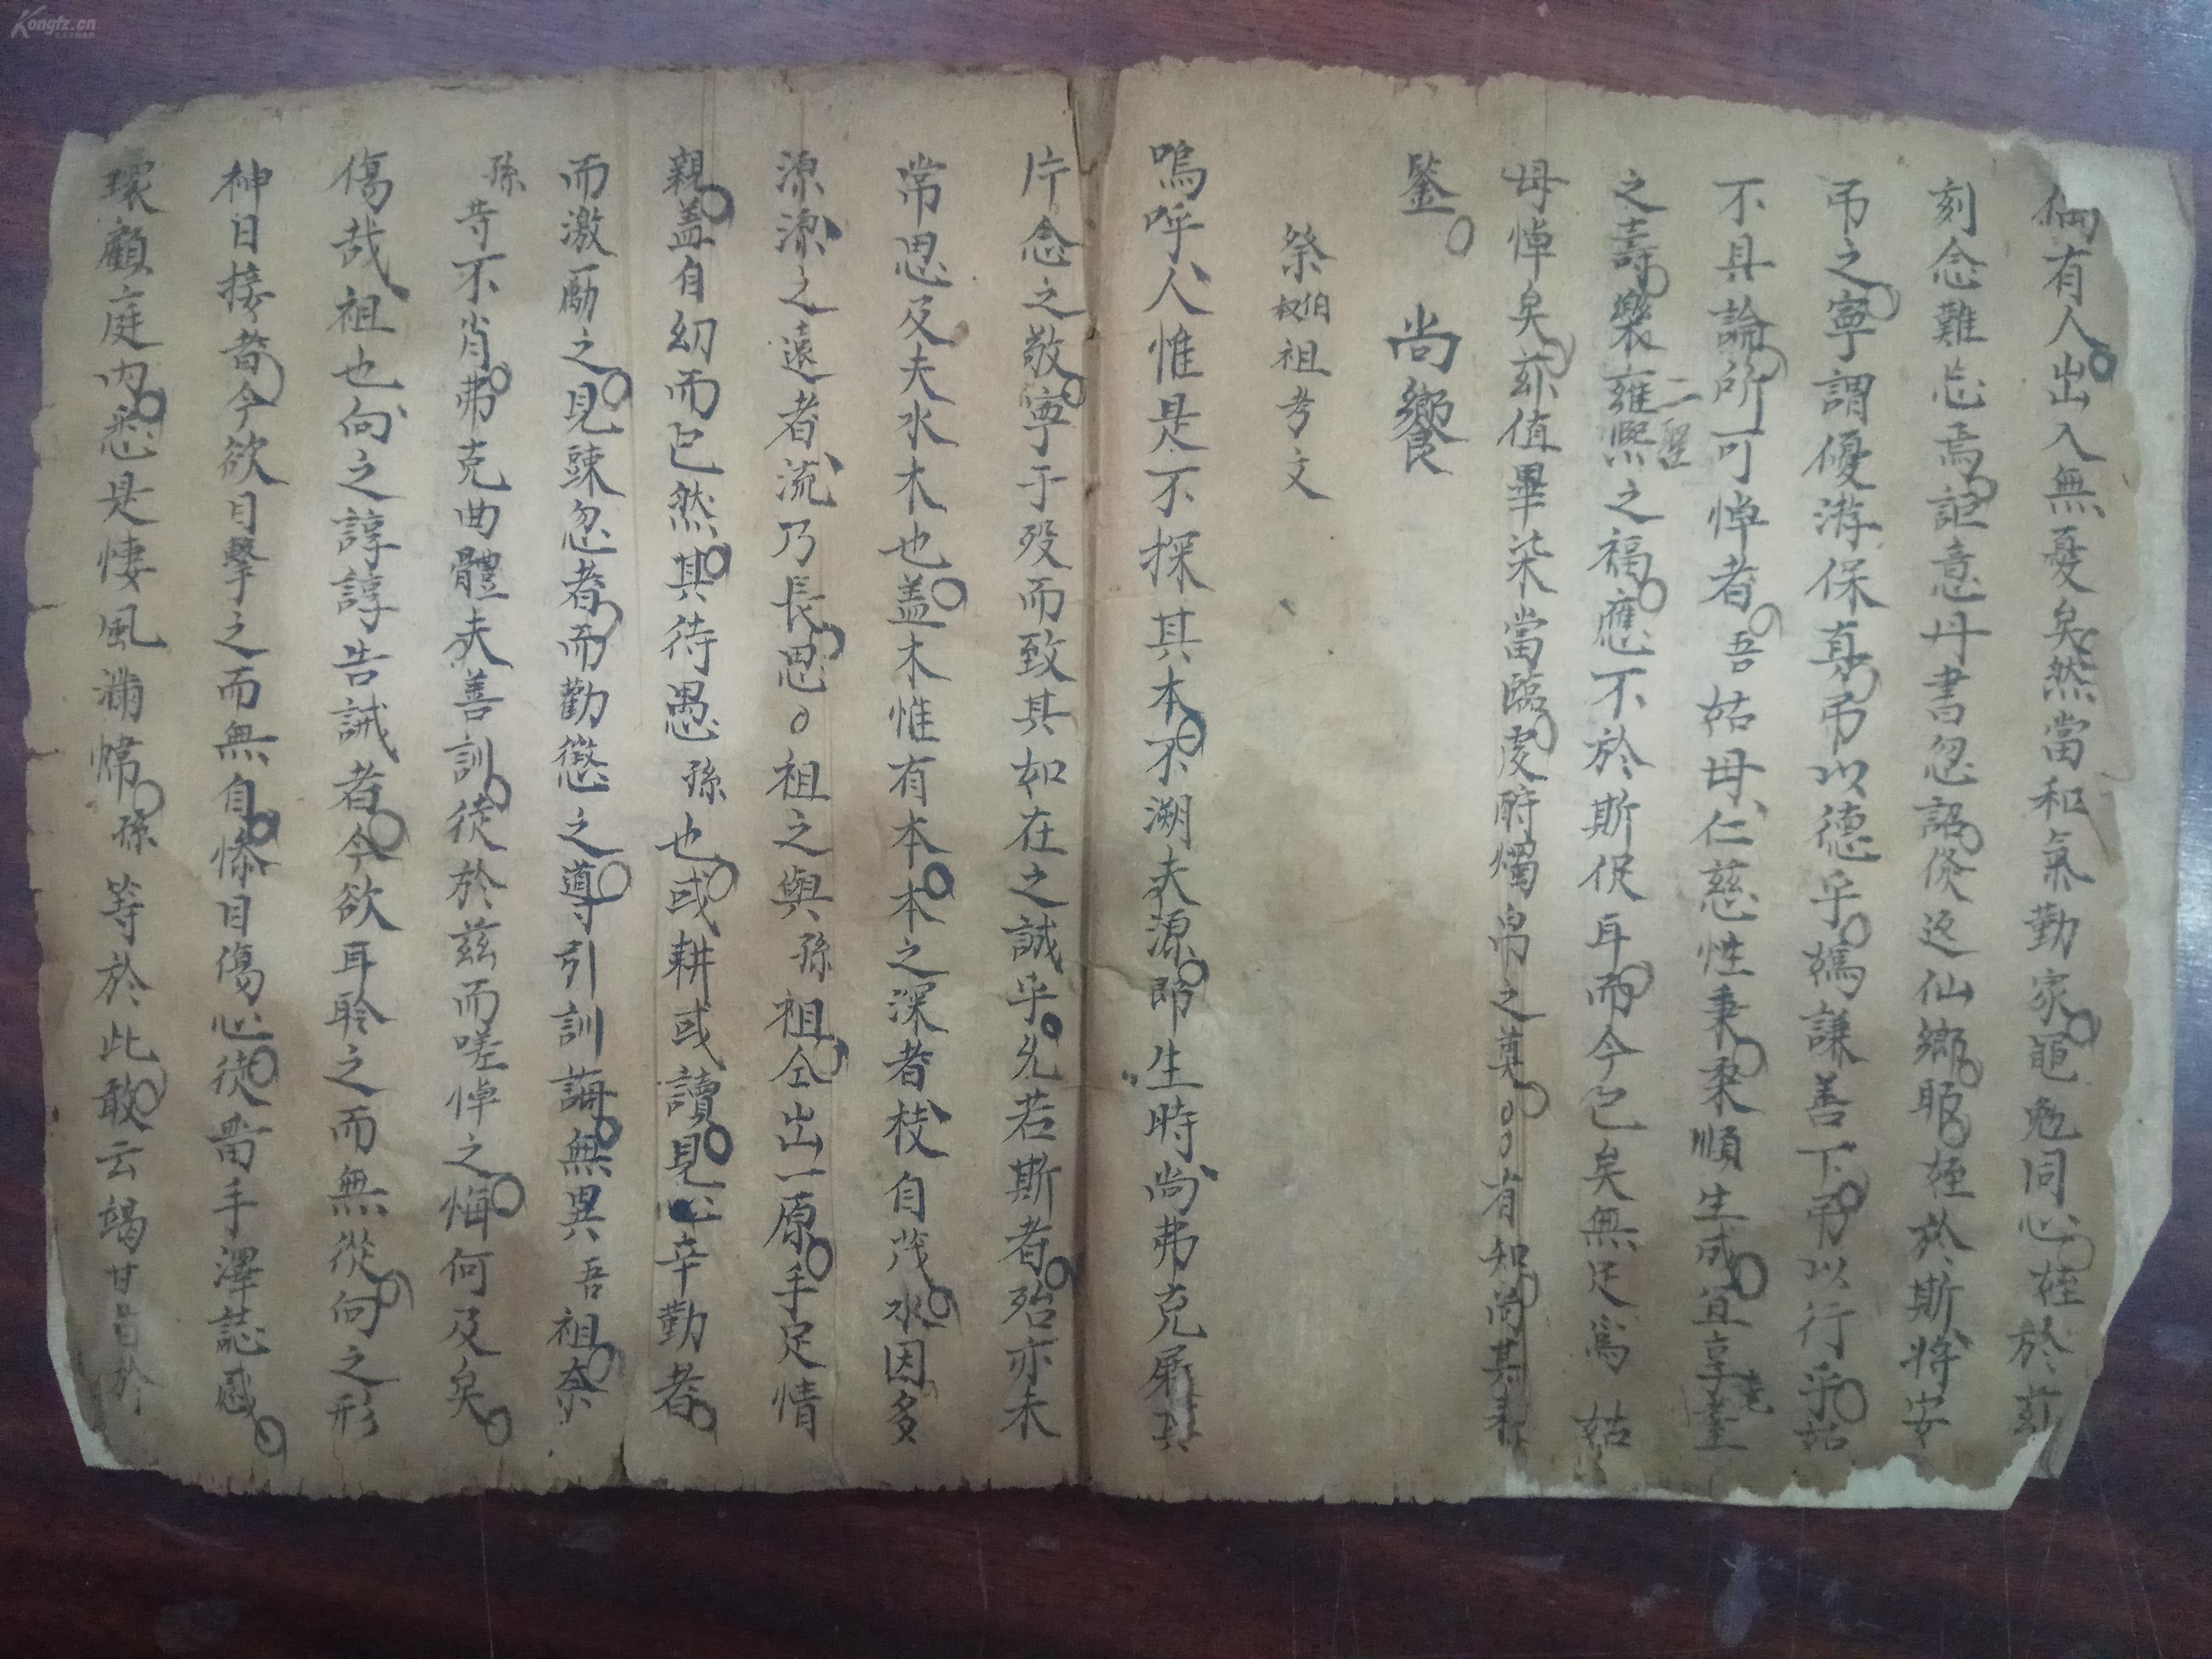 侕有人出入無憂矣然當和氣勤家黽勉同心姪於茲
刻念難忘焉詎意丹書忽詔倐返仙鄉耶姪於斯將安
弔之寧謂優游保真弔以德乎嫣謙善下弔以行乎姑
不具論所可悼者吾姑母仁慈性秉柔順生成宜享耄耋
之壽樂雍熙之福應不於斯促耳而今已矣無足爲姑
二聖
母悼矣茲值畢柒當臨虔酧燭帛之奠有知尚其來
鑒 尚饗
祭伯叔祖考文
嗚呼人惟是不探其本不溯夫源即生時尚弗克展其
片念之敬寧于歿而致其如在之誠乎允若斯者殆亦未
常思及夫水木也盖木惟有本本之深者枝自茂水因多
源源之遠者流乃長思祖之與孫祖仝出一原手足情
親盖自幼而已然其待愚孫也或耕或讀見心辛勤者
而激勵之見踈忽者而勸懲之導引訓誨無異吾祖奈
孫等不肖弗克曲體夫善訓徒於茲而嗟悼之悔何及矣
傷哉祖也向之諄諄告誡者今欲耳聆之而無從向之形
神日接者今欲目擊之而無自慘目傷心徒畱手澤誌感
環顧庭内悉是悽風滿幃孫等於此敢云竭甘旨於
Kongfz.cn